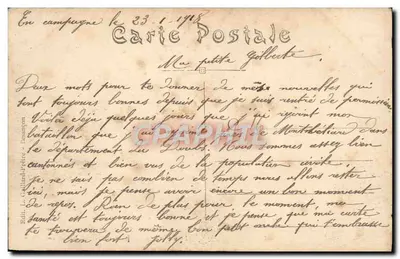 En campagne le 23-1-1918
Carte Postale
Ma petite Gilberte
Deux mots pour te donner de mes nouvelles qui
sont toujours bonnes depuis que je suis rentré de permission
Voilà déjà quelques jours que j'ai rejoint mon
bataillon que Montbéliard dans
le département du Doubs. Nous sommes assez bien
cantonnés et bien vus de la population civile.
je ne sais pas combien de temps nous allons rester
ici, mais je pense avoir encore un bon moment
de repos. Rien de plus pour le moment, ma
santé est toujours bonne et je pense que ma carte
te trouvera de même, bon petit ange qui t'embrasse
bien fort.